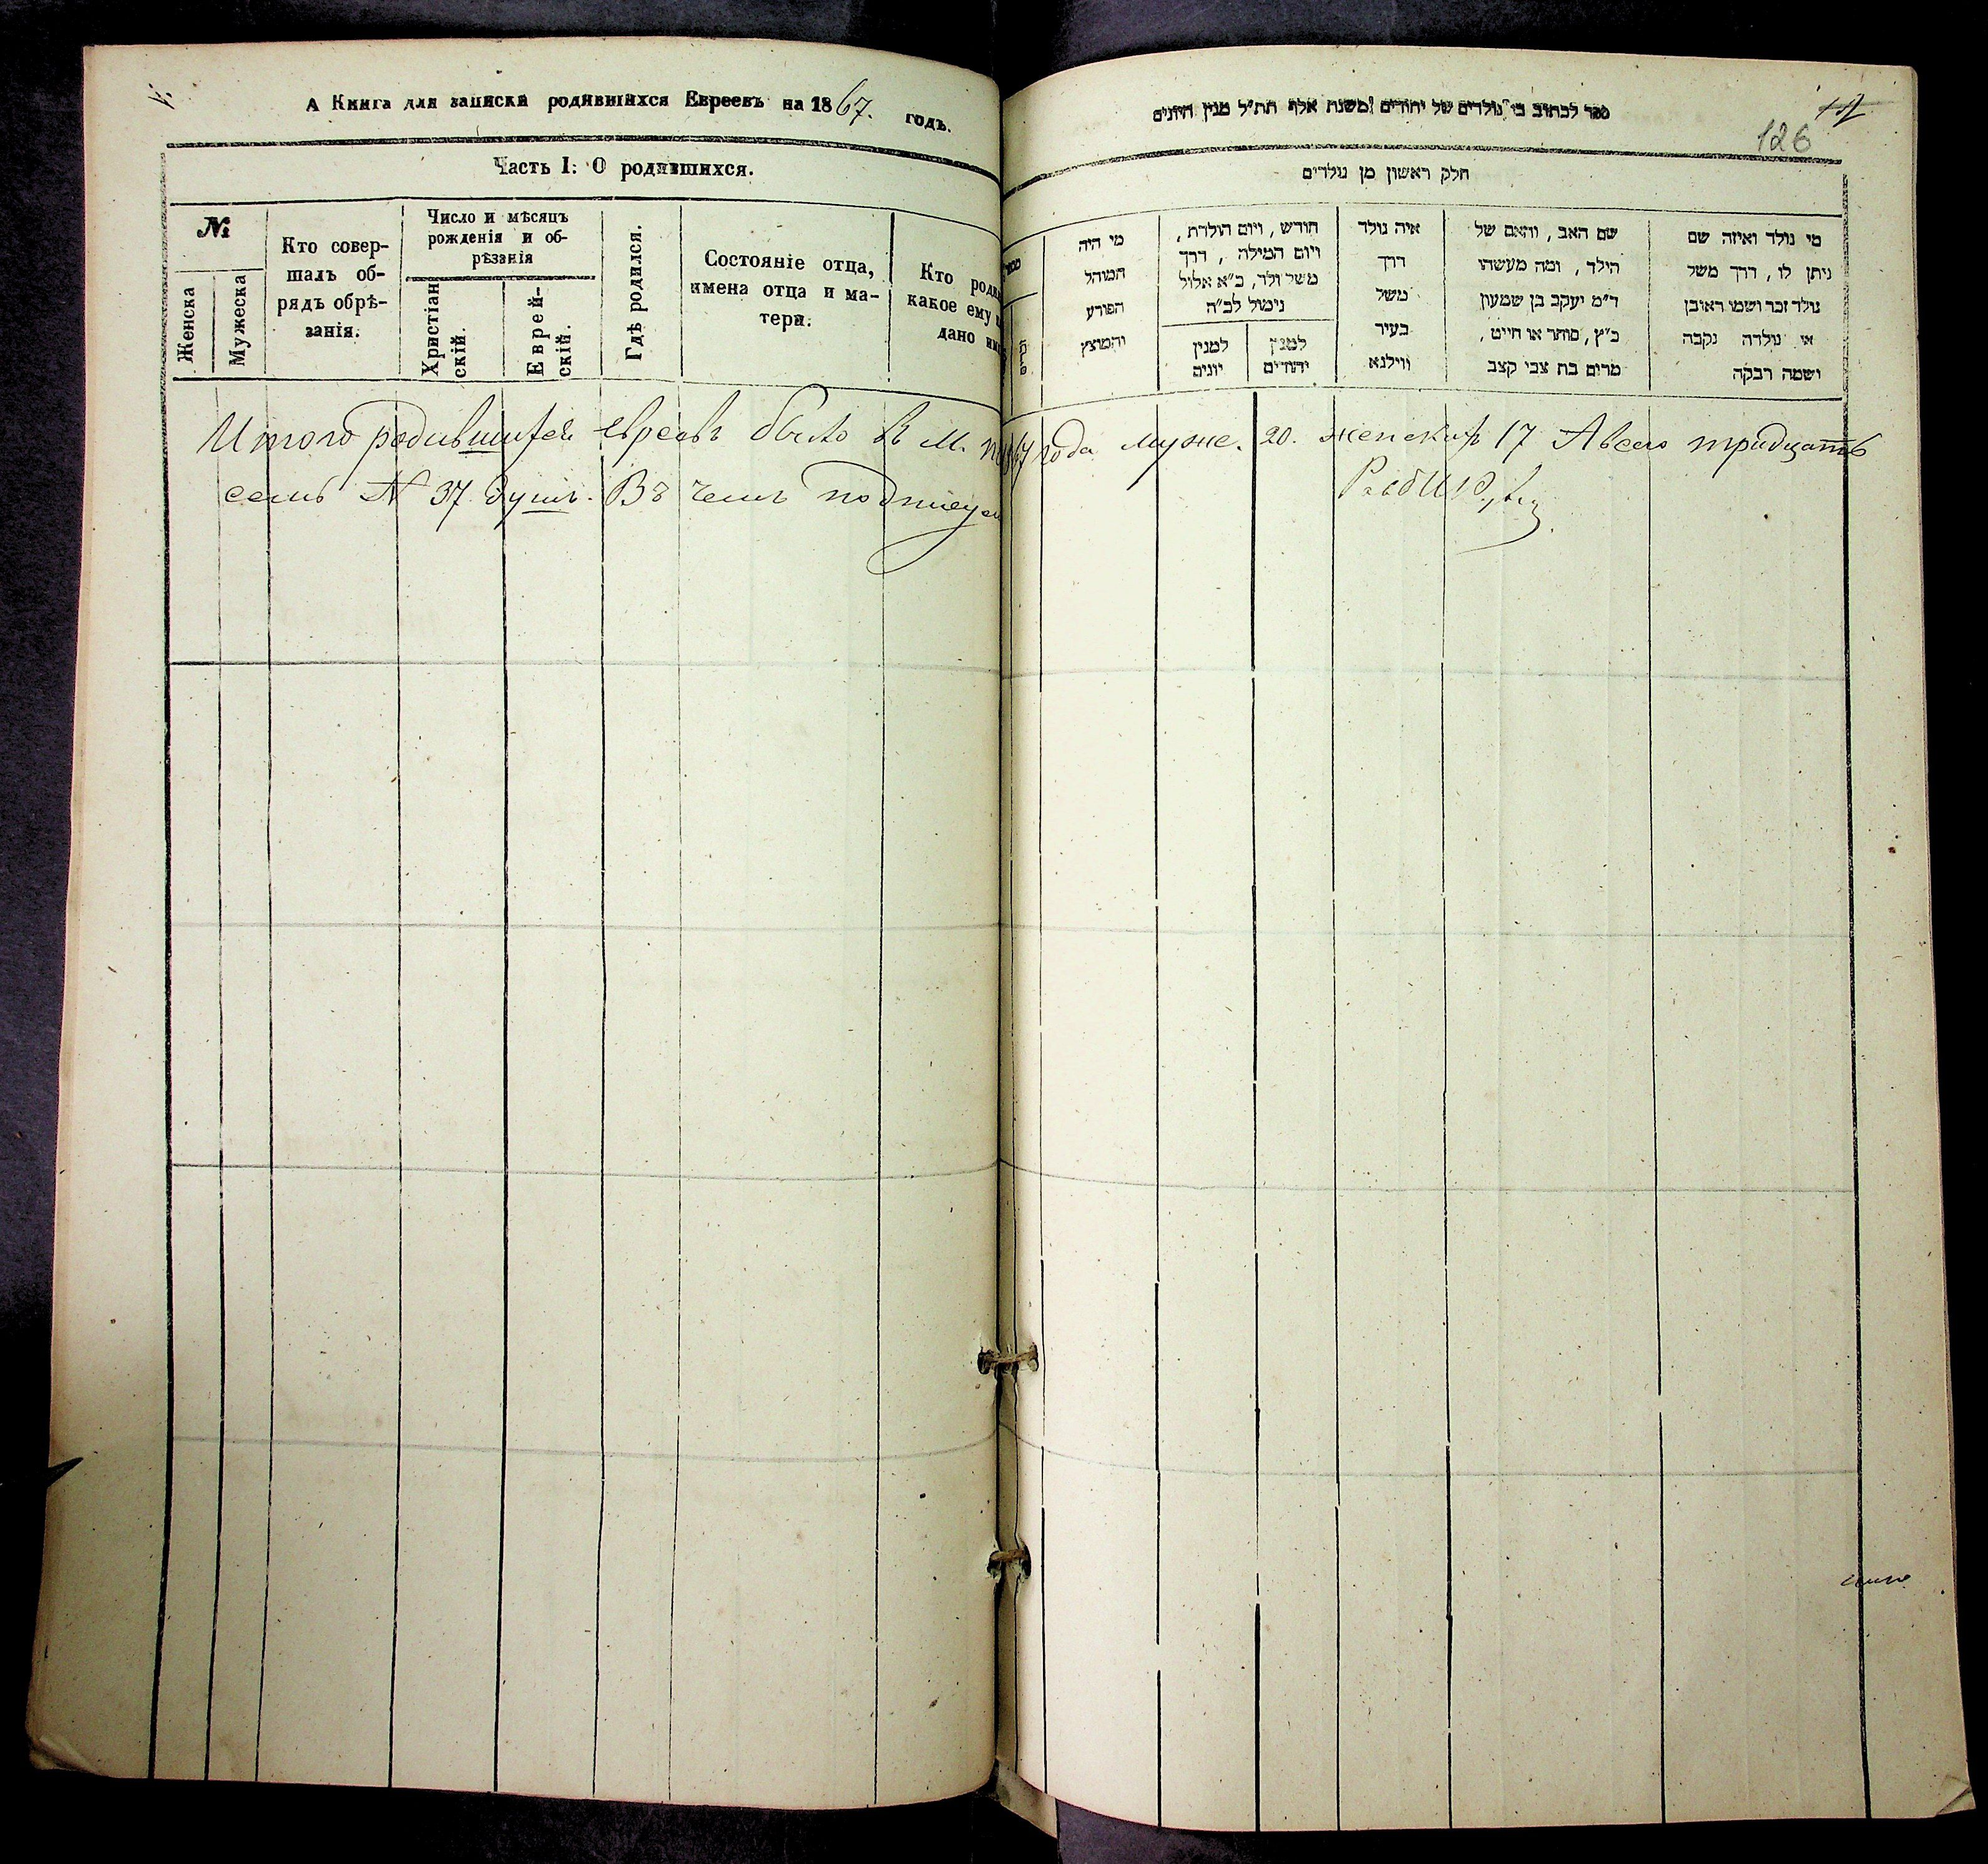 А Книга для записки родившихся Евреевъ на 1867. годъ.
Часть I: О родившихся.
№
Женска
Мужеска
Кто совер-
шалъ об-
рядъ обрѣ-
занія.
Число и мѣсяцъ
рожденія и об-
рѣзанія
Христіан
скій.
Еврей-
скій.
Гдѣ родился.
Состояніе отца,
имена отца и ма-
тери.
Кто роди
какое ему и
дано им
Итого родившихся евреевъ было въ М.
семь № 37 душъ. Въ чемъ подписуем
ספר לכתוב בו נולדים של יהודים משנת אלף תת״ל מנין היונים
126
חלק ראשון מן נולדים
מי נולד ואיזה שם
ניתן לו, דרך משל
נולד זכר ושמו ראובן
או נולדה נקבה
ושמה רבקה
שם האב, והאם של
הילד, ומה מעשהו
ד״מ יעקב בן שמעון
כ״ץ, סוחר או חייט,
מרים בת צבי קצב
איה נולד
דרך
משל
בעיר
ווילנא
חודש, ויום הולדת,
ויום המילה, דרך
משל ולד, כ״א אלול
נימול לב״ה
למנין
יהודים
למנין
יונים
מי היה
המוהל
הפורע
והמוצץ
67 года муже. 20. женских 17 А всего тридцать